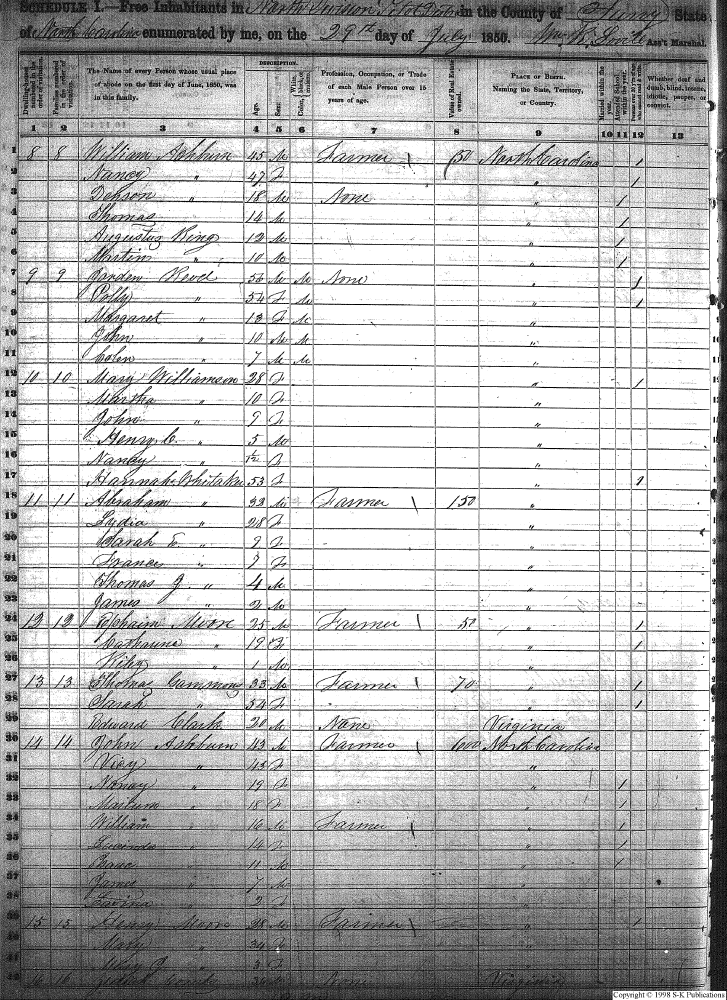 SCHEDULE I.—Free Inhabitants in North Division in the County of State
of North Carolina enumerated by me, on the 29th day of July 1850. Wm Ass't Marshal.
Dwelling-houses numbered in the order of visitation. Families numbered in the order of visitation. The Name of every Person whose usual place of abode on the first day of June, 1850, was in this family. DESCRIPTION. Age. Sex. White, Color, black, or mulatto. Profession, Occupation, or Trade of each Male Person over 15 years of age. Value of Real Estate owned. PLACE OF BIRTH. Naming the State, Territory, or Country. Married within the year. Whether deaf and dumb, blind, insane, idiotic, pauper, or convict.
1 2 3 4 5 6 7 8 9 10 11 12 13
1 8 8 William Ashburn 45 M Farmer 150 North Carolina /
2 Nancy " 47 F " /
3 Dobson " 18 M None " /
4 Thomas 14 M " /
5 Augustus King 12 M " /
6 Martin " 10 M " /
7 9 9 56 M M None " /
8 Polly " 54 F M " /
9 Margaret " 13 F M "
10 John " 10 M M "
11 Colen " 7 M M "
12 10 10 Mary Williamson 28 F " /
13 Martha " 10 F "
14 John " 9 "
15 Henry C. " 5 M "
16 Nancy " 1/2 F "
17 Hannah Whitaker 53 F "
18 11 11 Abraham " 32 M Farmer 150 "
19 Lydia " 28 F "
20 Sarah E. " 9 F "
21 " 7 F "
22 Thomas J " 4 M "
23 James " 2 M "
24 12 12 Moore 25 M Farmer 50 " /
25 Catharine " 19 F " /
26 " 1 M "
27 13 13 Thomas Cammons 33 M Farmer 70 " /
28 Sarah " 54 F " /
29 Edward Clark 20 M None Virginia
30 14 14 John Ashburn 43 M Farmer 600 North Carolina
31 " 43 F "
32 Nancy " 19 F " /
33 " 18 F " /
34 William " 16 M Farmer " /
35 Lucinda " 14 F " /
36 Isaac " 11 M " /
37 James " 7 M "
38 " 2 F "
39 15 15 Henry Moore 28 M Farmer " /
40 Mary " 24 F "
41 Mary J " 3 F "
42 16 16 None Virginia
Copyright © 1998 S-K Publications